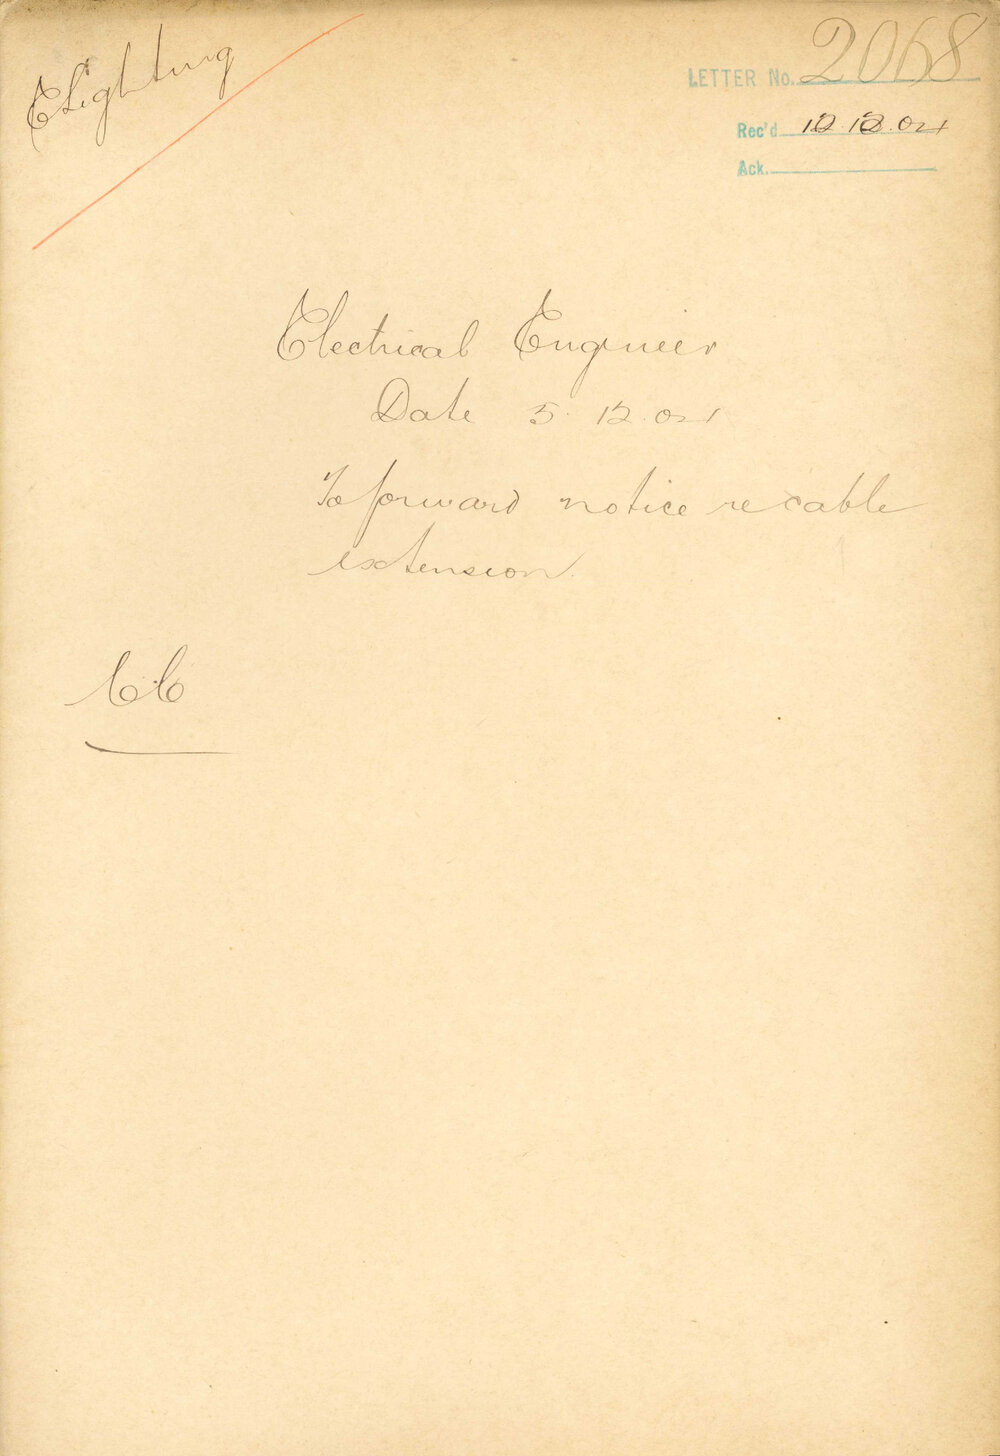 E Lighting
LETTER No. 2068
Rec'd 12.12.04
Ack.
Electrical Engineer
Date 5.12.04
To forward notice re cable
extension.